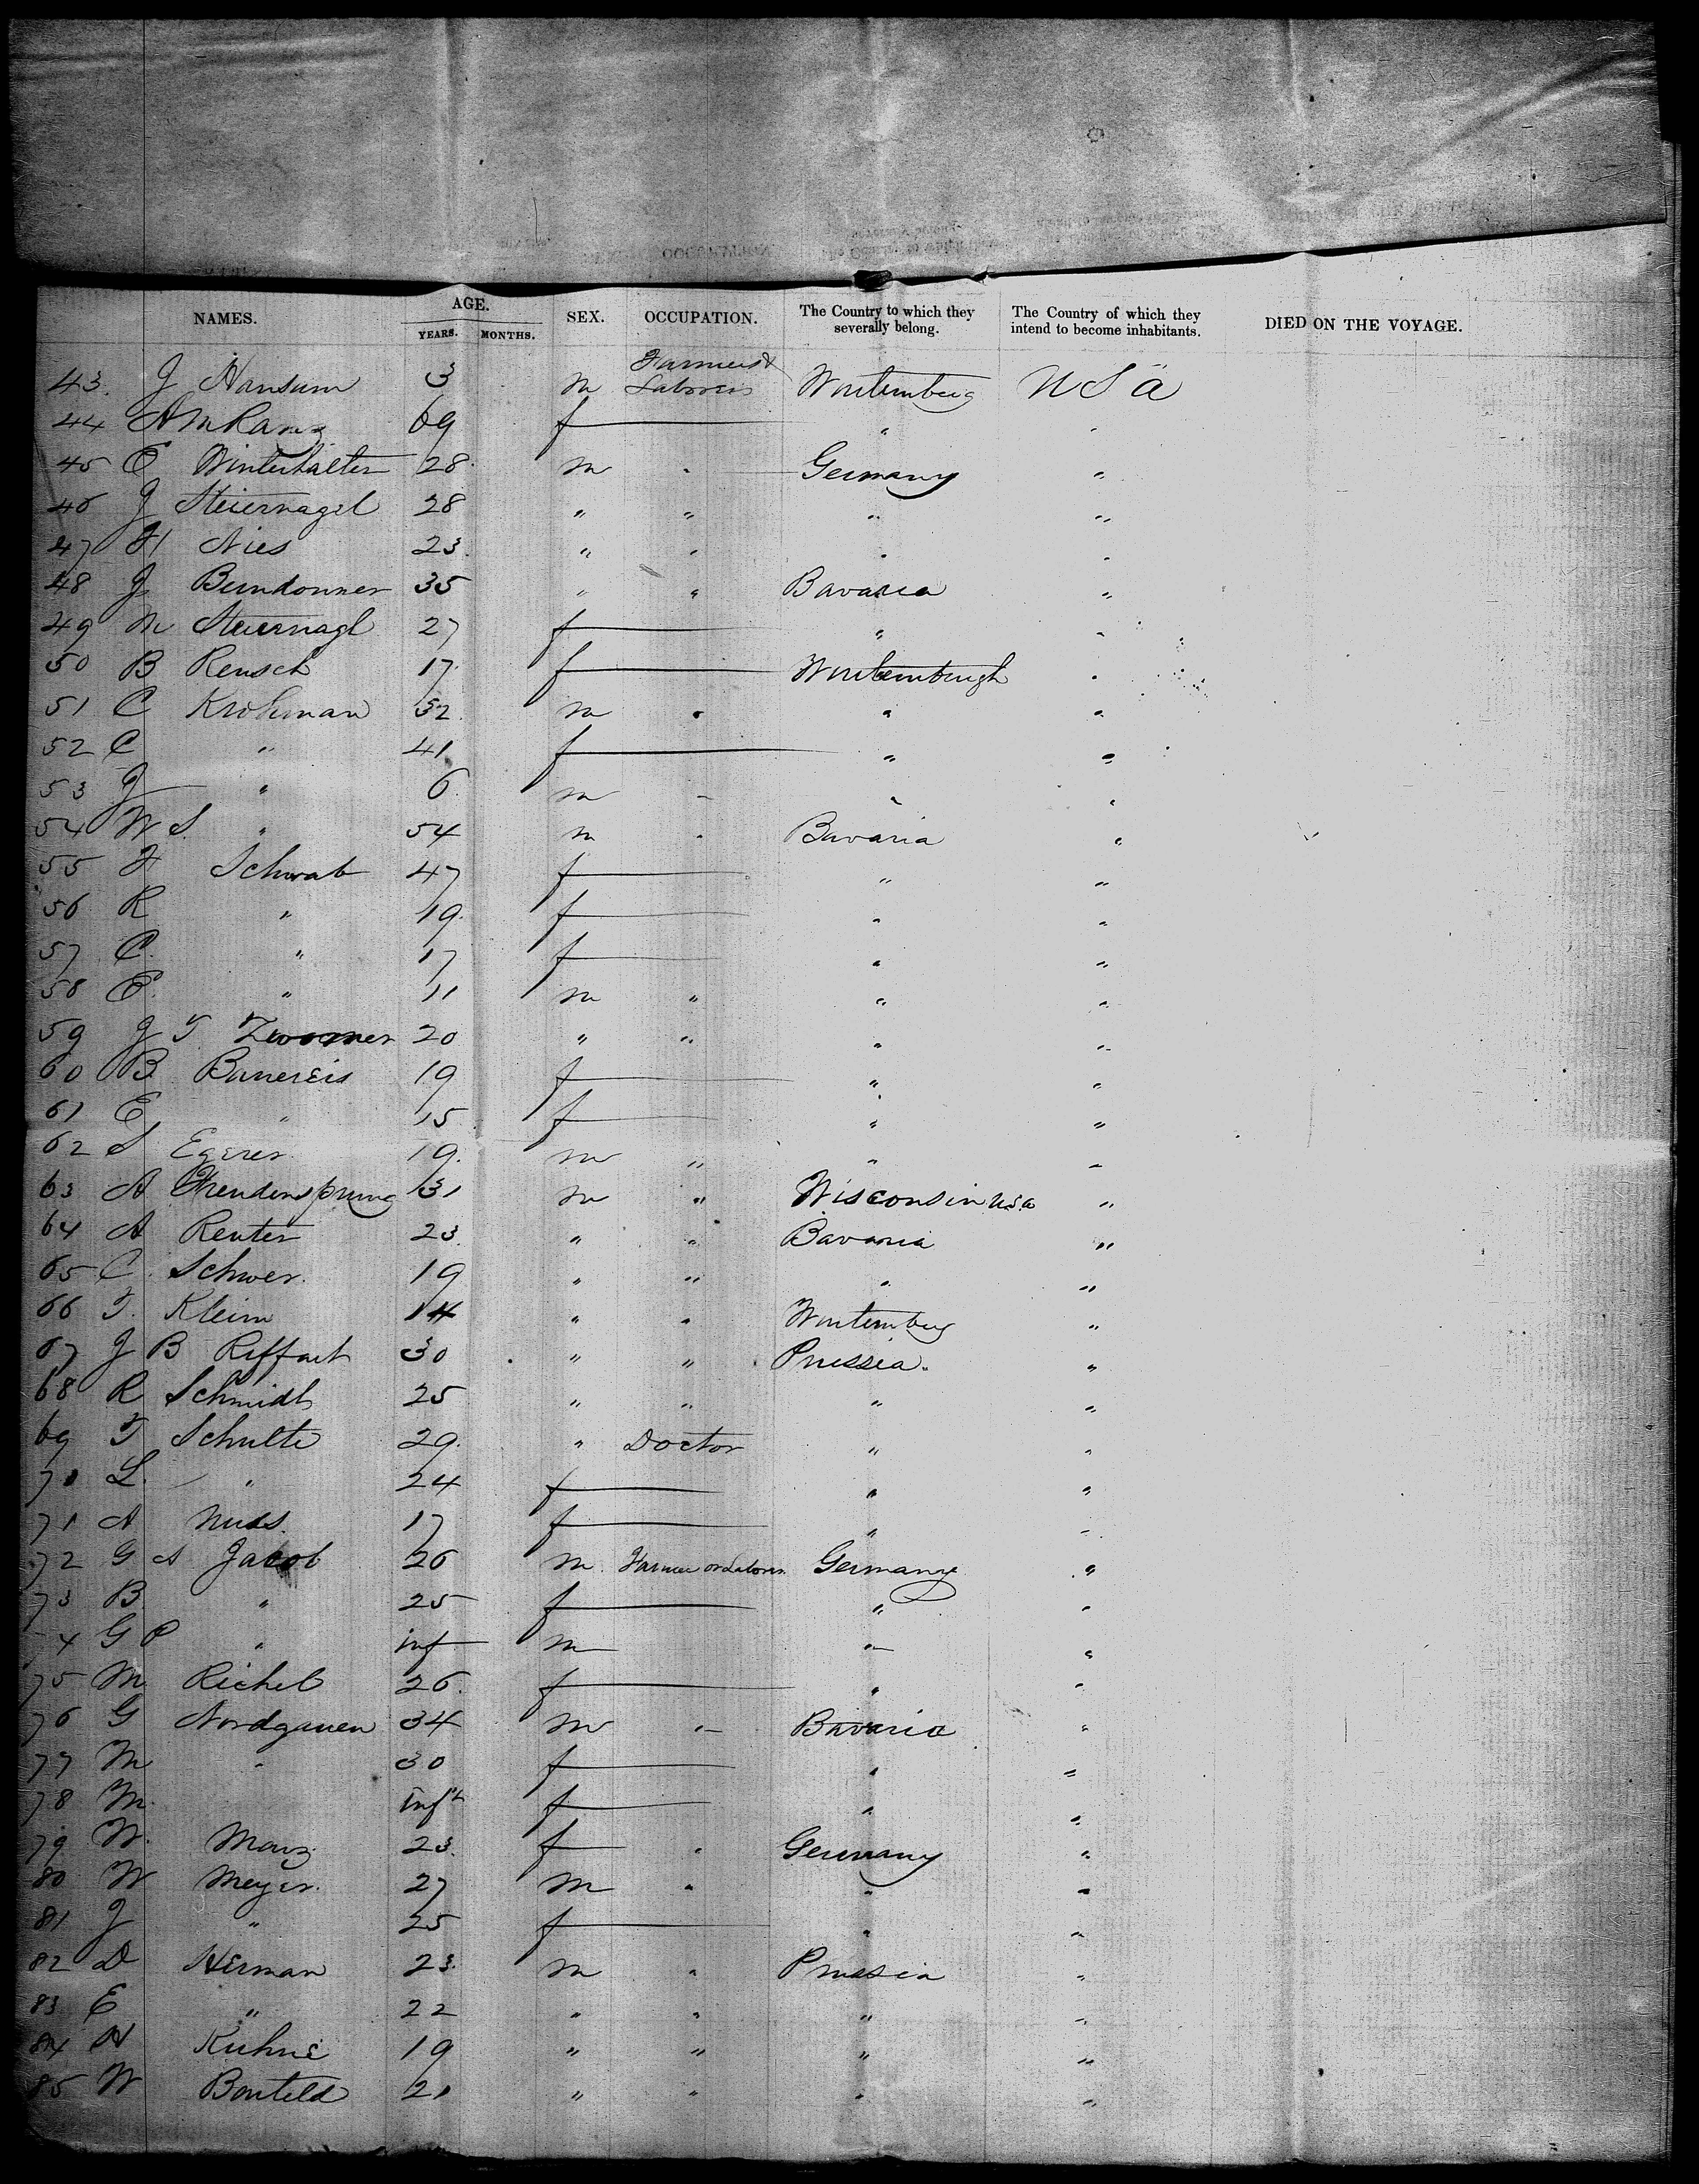 NAMES. AGE. YEARS. MONTHS. SEX. OCCUPATION. The Country to which they severally belong. The Country of which they intend to become inhabitants. DIED ON THE VOYAGE.
43. J Hansum 3 m Farmers & Laborers Wurtemberg U S a
44 A M Ranz 69 f " "
45 E Winterhalter 28 m " Germany "
46 J Steiernagel 28 " " " "
47 H Nies 23 " " " "
48 J Bundonner 35 " " Bavaria "
49 M Steiernagl 27 f " "
50 B Rensch 17 f Wurtemburgh "
51 C Krohman 52 m " " "
52 C " 41 f " "
53 J " 6 m " " "
54 W S. " 54 m " Bavaria "
55 H Schwab 47 f " "
56 R " 19 f " "
57 C. " 17 f " "
58 E. " 11 m " " "
59 J T 20 " " " "
60 B Banereis 19 f " "
61 E " 15 f " "
62 S Egerer 19. m " " "
63 A Freudensprung 31 m " Wisconsin U.S.a "
64 A Renter 23 " " Bavaria "
65 C. Schwer. 19 " " " "
66 T. Kleim 14 " " Wurtemberg "
67 J B Riffart 30 " " Prussia. "
68 R Schmidt 25 " " " "
69 T Schulte 29. " Doctor " "
70 L. " 24 f " "
71 A Nuss. 17 f " "
72 G A Jacob 26 m Farmer or Laborer Germany "
73 B. " 25 f " "
74 G P " inf m " "
75 M Richel 26. f " "
76 G Nordgauen 34 m " Bavaria "
77 M " 30 f " "
78 M. inft f " "
79 W. Manz 23. f " Germany "
80 W Meyer. 27 m " " "
81 J " 25 f " "
82 D Herman 23. m " Prussia "
83 E " 22 " " " "
84 H Kuhne 19 " " " "
85 W Bonteld 21 " " " "